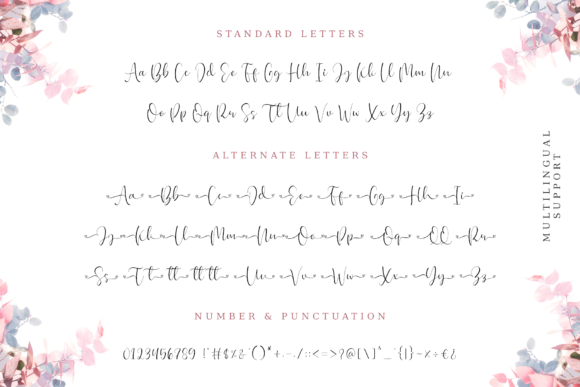 STANDARD LETTERS
Aa Bb Cc Dd Ee Ff Gg Hh Ii Jj Kk Ll Mm Nn
Oo Pp Qq Rr Ss Tt Uu Vv Ww Xx Yy Zz
ALTERNATE LETTERS
Aa Bb Cc Dd Ee Ff Gg Hh Ii
Jj Kk Ll Mm Nn Oo Pp Qq QQ Rr
Ss T t tt tt tt Uu Vv Ww Xx Yy Zz
NUMBER & PUNCTUATION
0123456789 !"#$%&'()*+,-./:;<=>?@[\]^_`{|}-×÷€¿
MULTILINGUAL
SUPPORT